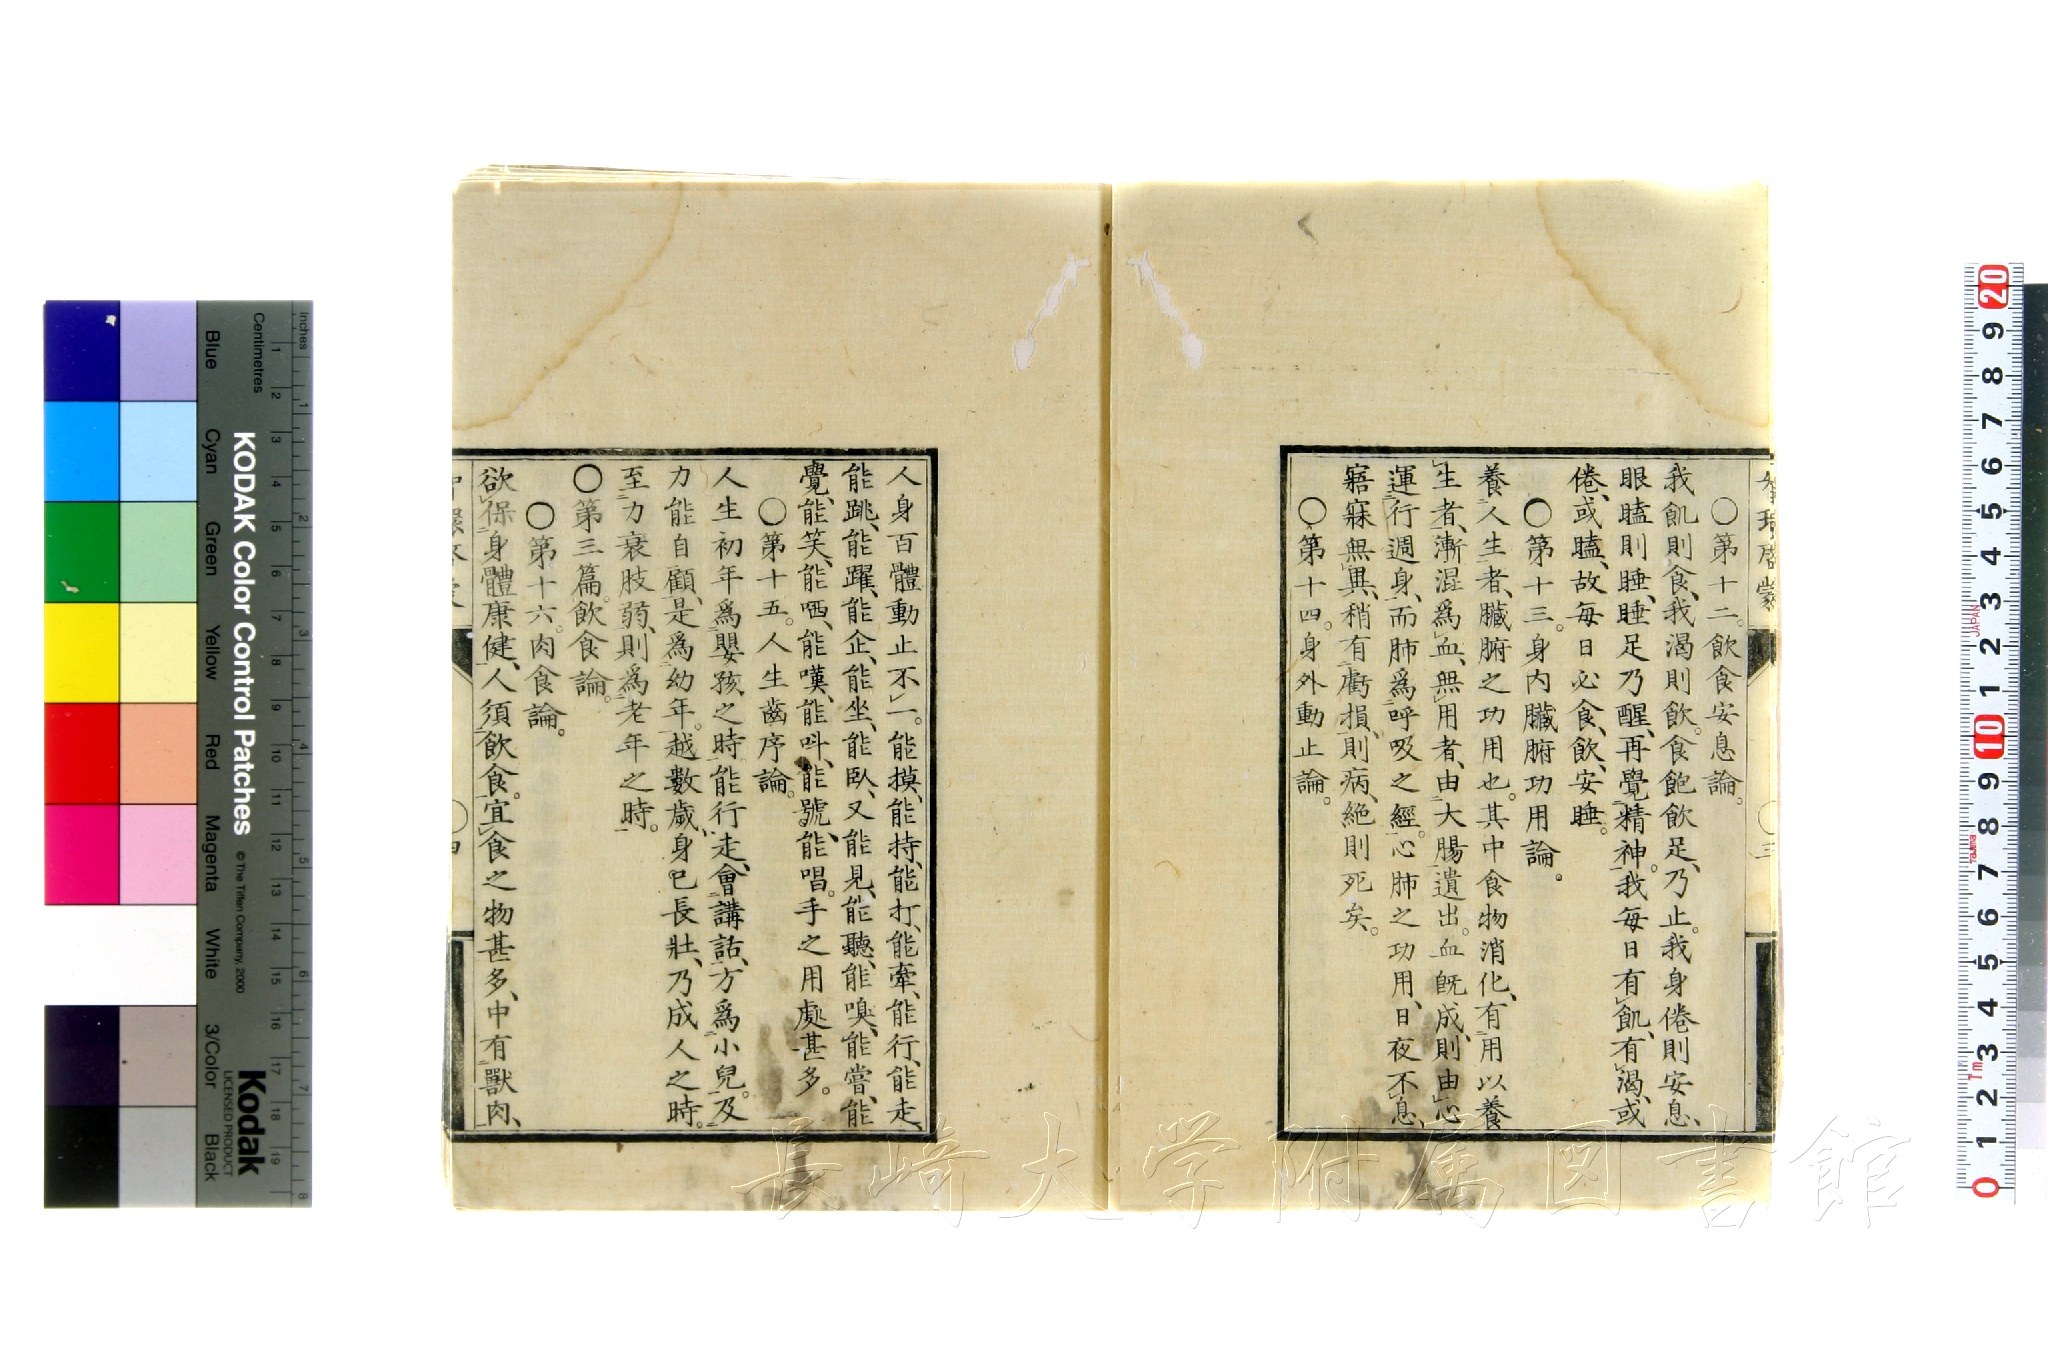 〇第十二。飲食安息論。
我飢則食、我渴則飲。食飽飲足、乃止。我身倦則安息、
眼瞌則睡、睡足乃醒、再覺精神。我每日有飢、有渴、或
倦、或瞌、故每日必食、飲、安睡。
〇第十三。身內臟腑功用論。
養人生者、臟腑之功用也。其中食物消化、有用以養
生者、漸混爲血、無用者、由大腸遺出。血旣成、則由心
運行週身、而肺爲呼吸之經。心肺之功用、日夜不息、
寤寐無異、稍有虧損、則病、絕則死矣。
〇第十四。身外動止論。
〇三
人身百體動止不一。能摸、能持、能打、能牽、能行、能走、
能跳、能躍、能企、能坐、能臥、又能見、能聽、能嗅、能嘗、能
覺、能笑、能哂、能嘆、能呌、能號、能唱。手之用處甚多。
〇第十五。人生齒序論。
人生初年爲嬰孩之時、能行走、會講話、方爲小兒。及
力能自顧、是爲幼年。越數歲、身已長壯、乃成人之時。
至力衰肢弱、則爲老年之時。
〇第三篇。飲食論。
〇第十六。肉食論。
欲保身體康健、人須飲食。宜食之物甚多、中有獸肉、
KODAK Color Control Patches
© The Tiffen Company, 2000
Kodak
LICENSED PRODUCT
Inches
Centimetres
Blue
Cyan
Green
Yellow
Red
Magenta
White
3/Color
Black
JAPAN
長崎大学附属図書館